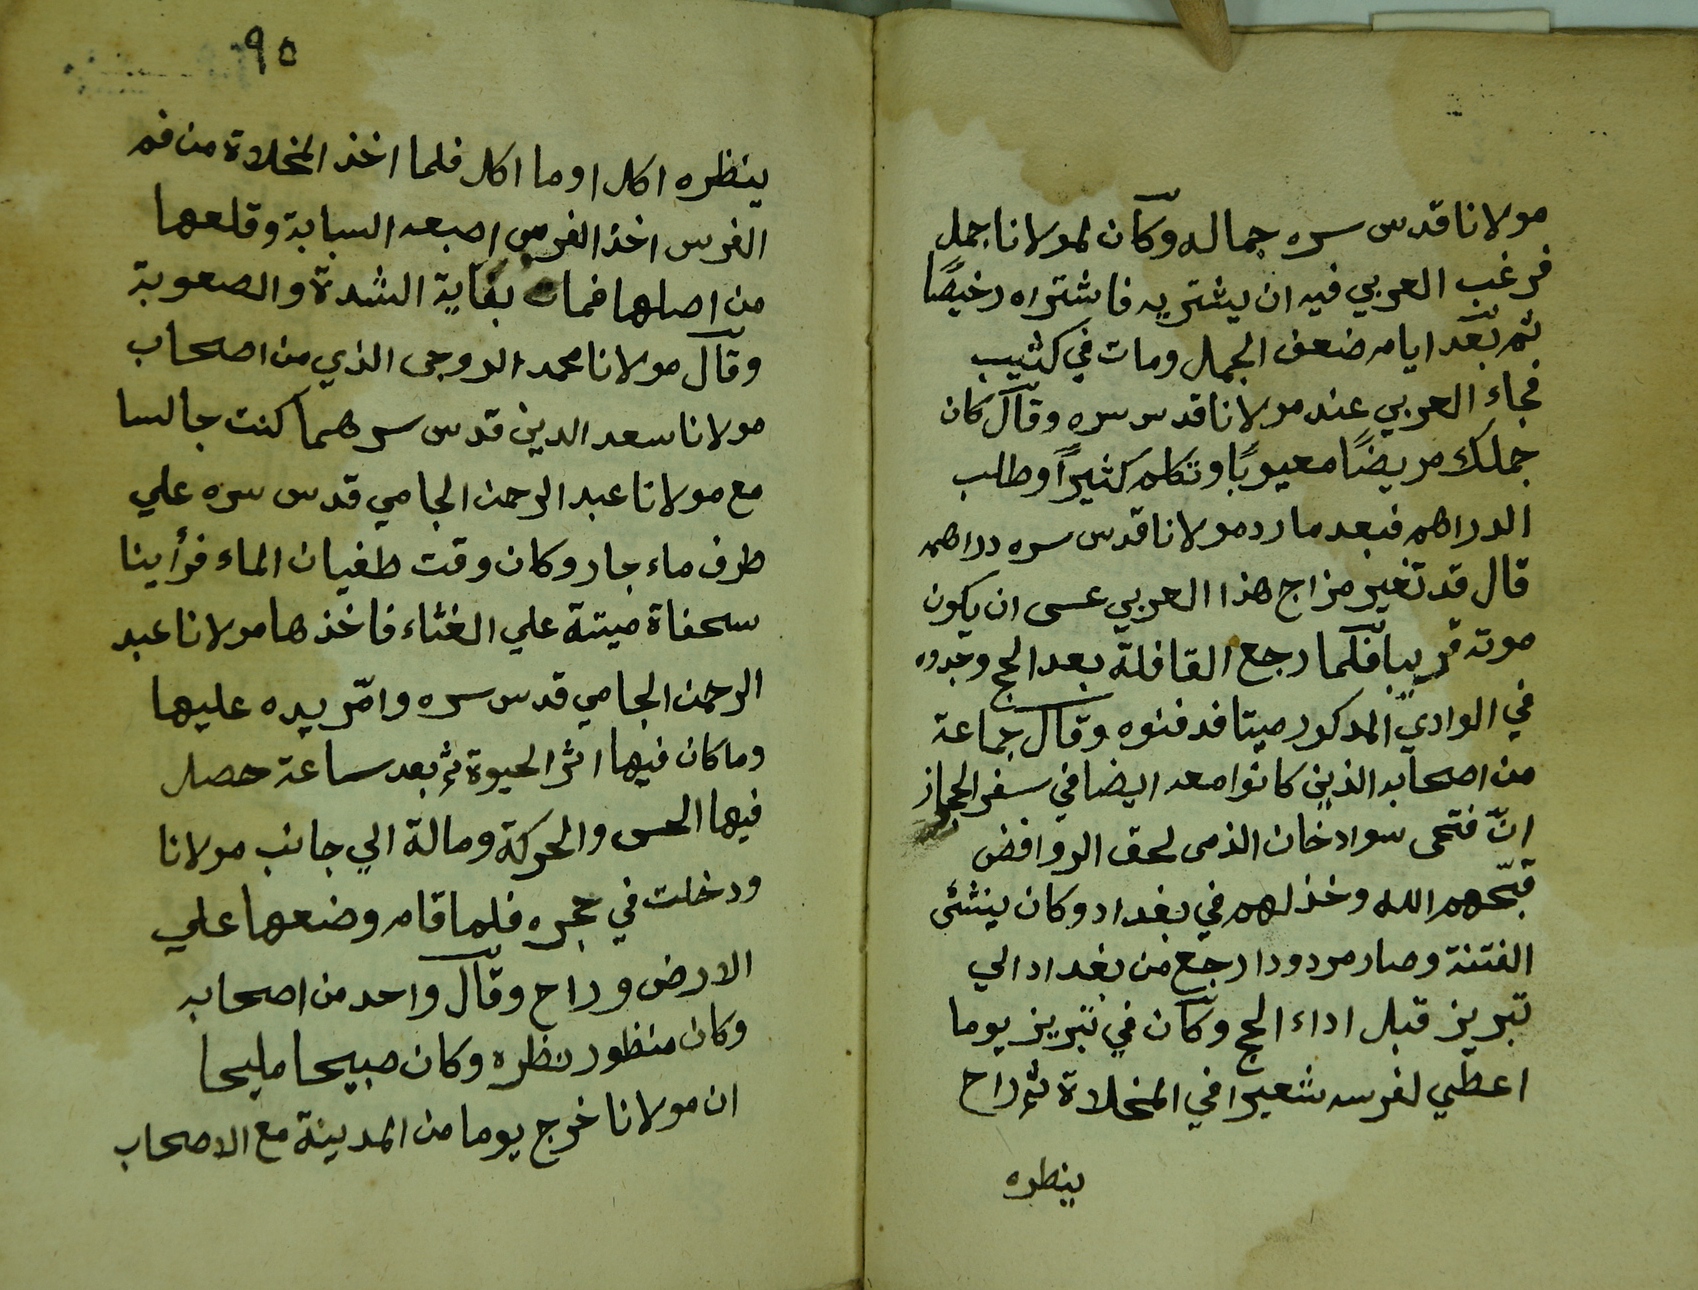 مولانا قدس سره جماله وكان لمولانا جمل
فرغب العربي فيه ان يشتريه فاشتراه رخيصًا
ثم بعد ايام ضعف الجمل ومات في كثيب
فجاء العربي عند مولانا قدس سره وقال كان
جملك مريضًا معيوبًا وتكلم كثيرًا وطلب
الدراهم فبعد ما رد مولانا قدس سره دراهمه
قال قد تغير مزاج هذا العربي عسى ان يكون
موته قريبا فلما رجع القافلة بعد الحج وجدوه
في الوادي المذكور ميتا فدفنوه وقال جماعة
من اصحابه الذين كانوا معه ايضا في سفر الحجاز
انّ فتحى سواد خان الذى لحق الروافض
قبّحهم الله وخذلهم في بغداد وكان ينشئ
الفتنة وصار مردودا رجع من بغداد الي
تبريز قبل اداء الحج وكان في تبريز يوما
اعطي لفرسه شعيرا في المخلاة ثم راح
ينظره
٩٥
ينظره اكل او ما اكل فلما اخذ المخلاة من فم
الفرس اخذ الفرس اصبعه السبابة وقلعها
من اصلها فمات بغاية الشدة والصعوبة
وقال مولانا محمد الروجى الذي من اصحاب
مولانا سعد الدين قدس سرهما كنت جالسا
مع مولانا عبد الرحمن الجامي قدس سره علي
طرف ماء جار وكان وقت طغيان الماء فرأينا
سحفاة ميتة علي الغثاء فاخذها مولانا عبد
الرحمن الجامي قدس سره وامّر يده عليها
وما كان فيها اثر الحيوة ثم بعد ساعة حصل
فيها الحس والحركة ومالة الي جانب مولانا
ودخلت في حجره فلما قام وضعها علي
الارض وراح وقال واحد من اصحابه
وكان منظور نظره وكان صبيحا مليحا
ان مولانا خرج يوما من المدينة مع الاصحاب